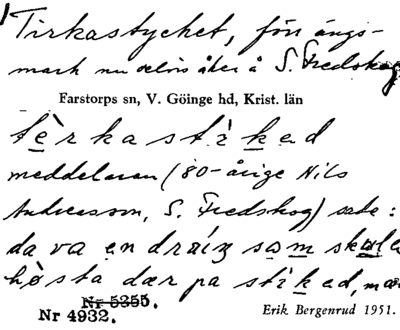 Tirkastycket, förr ängs-
mark nu delvis åker å S. Fredskog
Farstorps sn, V. Göinge hd, Krist. län
tèrkastìkad
meddelaren (80-årige Nils
Andreasson, S. Fredskog) sade:
da va en dräng som skulle
hösta där pa stikad, man
Nr 5255.
Nr 4932.
Erik Bergenrud 1951.